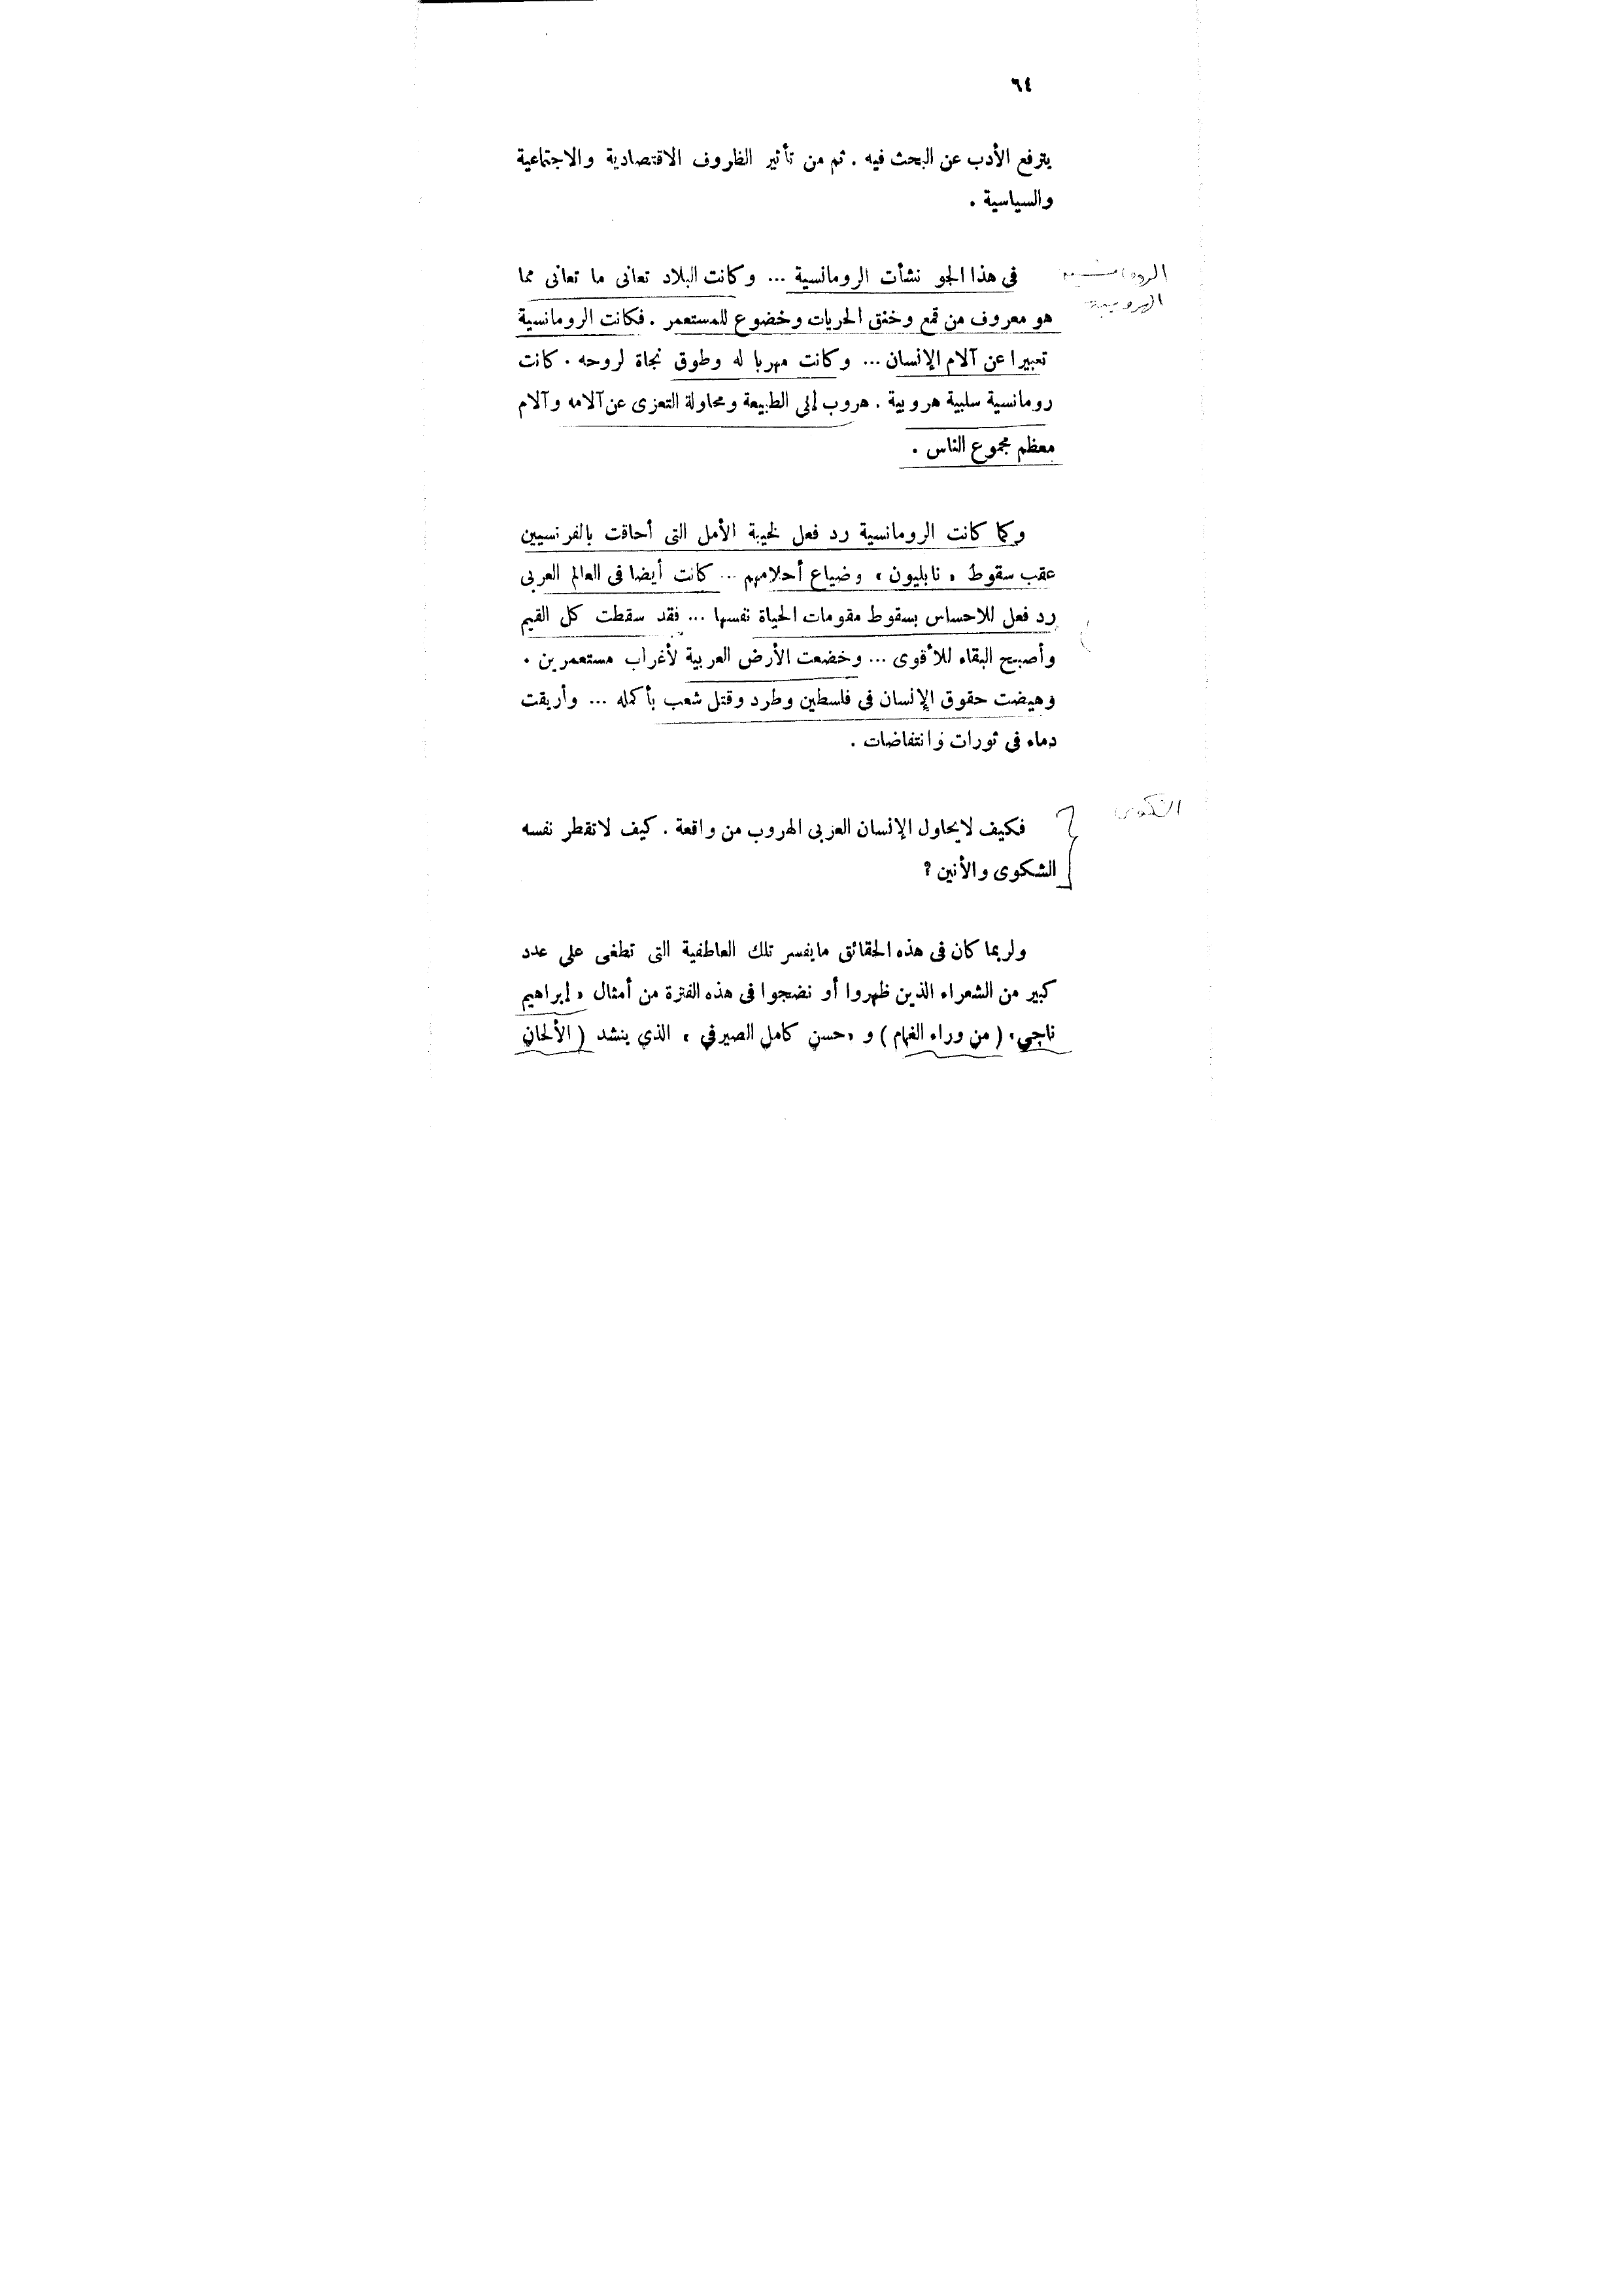 ٦٤
يترفع الأدب عن البحث فيه . ثم من تأثير الظروف الاقتصادية والاجتماعية
والسياسية .
الرومانسية
الهروبية
فى هذا الجو نشأت الرومانسية ... وكانت البلاد تعانى ما تعانى مما
هو معروف من قمع وخنق الحريات وخضوع للمستعمر . فكانت الرومانسية
تعبيرا عن آلام الإنسان ... وكانت مهربا له وطوق نجاة لروحه . كانت
رومانسية سلبية هروبية . هروب إلى الطبيعة ومحاولة التعزى عن آلامه وآلام
معظم مجموع الناس .
وكما كانت الرومانسية رد فعل لخيبة الأمل التى أحاقت بالفرنسيين
عقب سقوط « نابليون » وضياع أحلامهم ... كانت أيضا فى العالم العربى
رد فعل للاحساس بسقوط مقومات الحياة نفسها ... فقد سقطت كل القيم
وأصبح البقاء للأقوى ... وخضعت الأرض العربية لأغراب مستعمرين .
وهيضت حقوق الإنسان فى فلسطين وطرد وقتل شعب بأكمله ... وأريقت
دماء فى ثورات وانتفاضات .
الشكوى
فكيف لايحاول الإنسان العربى الهروب من واقعة . كيف لاتقطر نفسه
الشكوى والأنين ؟
ولربما كان فى هذه الحقائق مايفسر تلك العاطفية التى تطغى على عدد
كبير من الشعراء الذين ظهروا أو نضجوا فى هذه الفترة من أمثال « إبراهيم
ناجي » ( من وراء الغمام ) و « حسن كامل الصيرفي » الذي ينشد ( الألحان